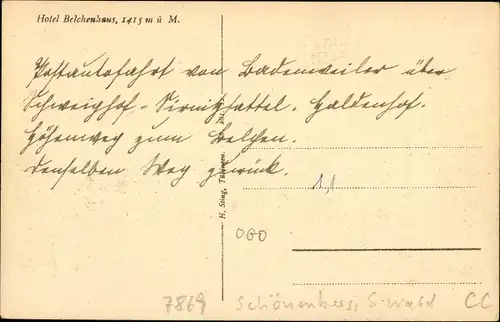 Hotel Belchenhaus, 1415 m ü M.
Postautofahrt von Badenweiler über
Schweighof - Sirnitzsattel. Haldenhof.
Höhenweg zum Belchen.
Denselben Weg zurück.
H. Sting, Tübingen.
1.1
OGO
7869 Schönenberg, S-wald CC